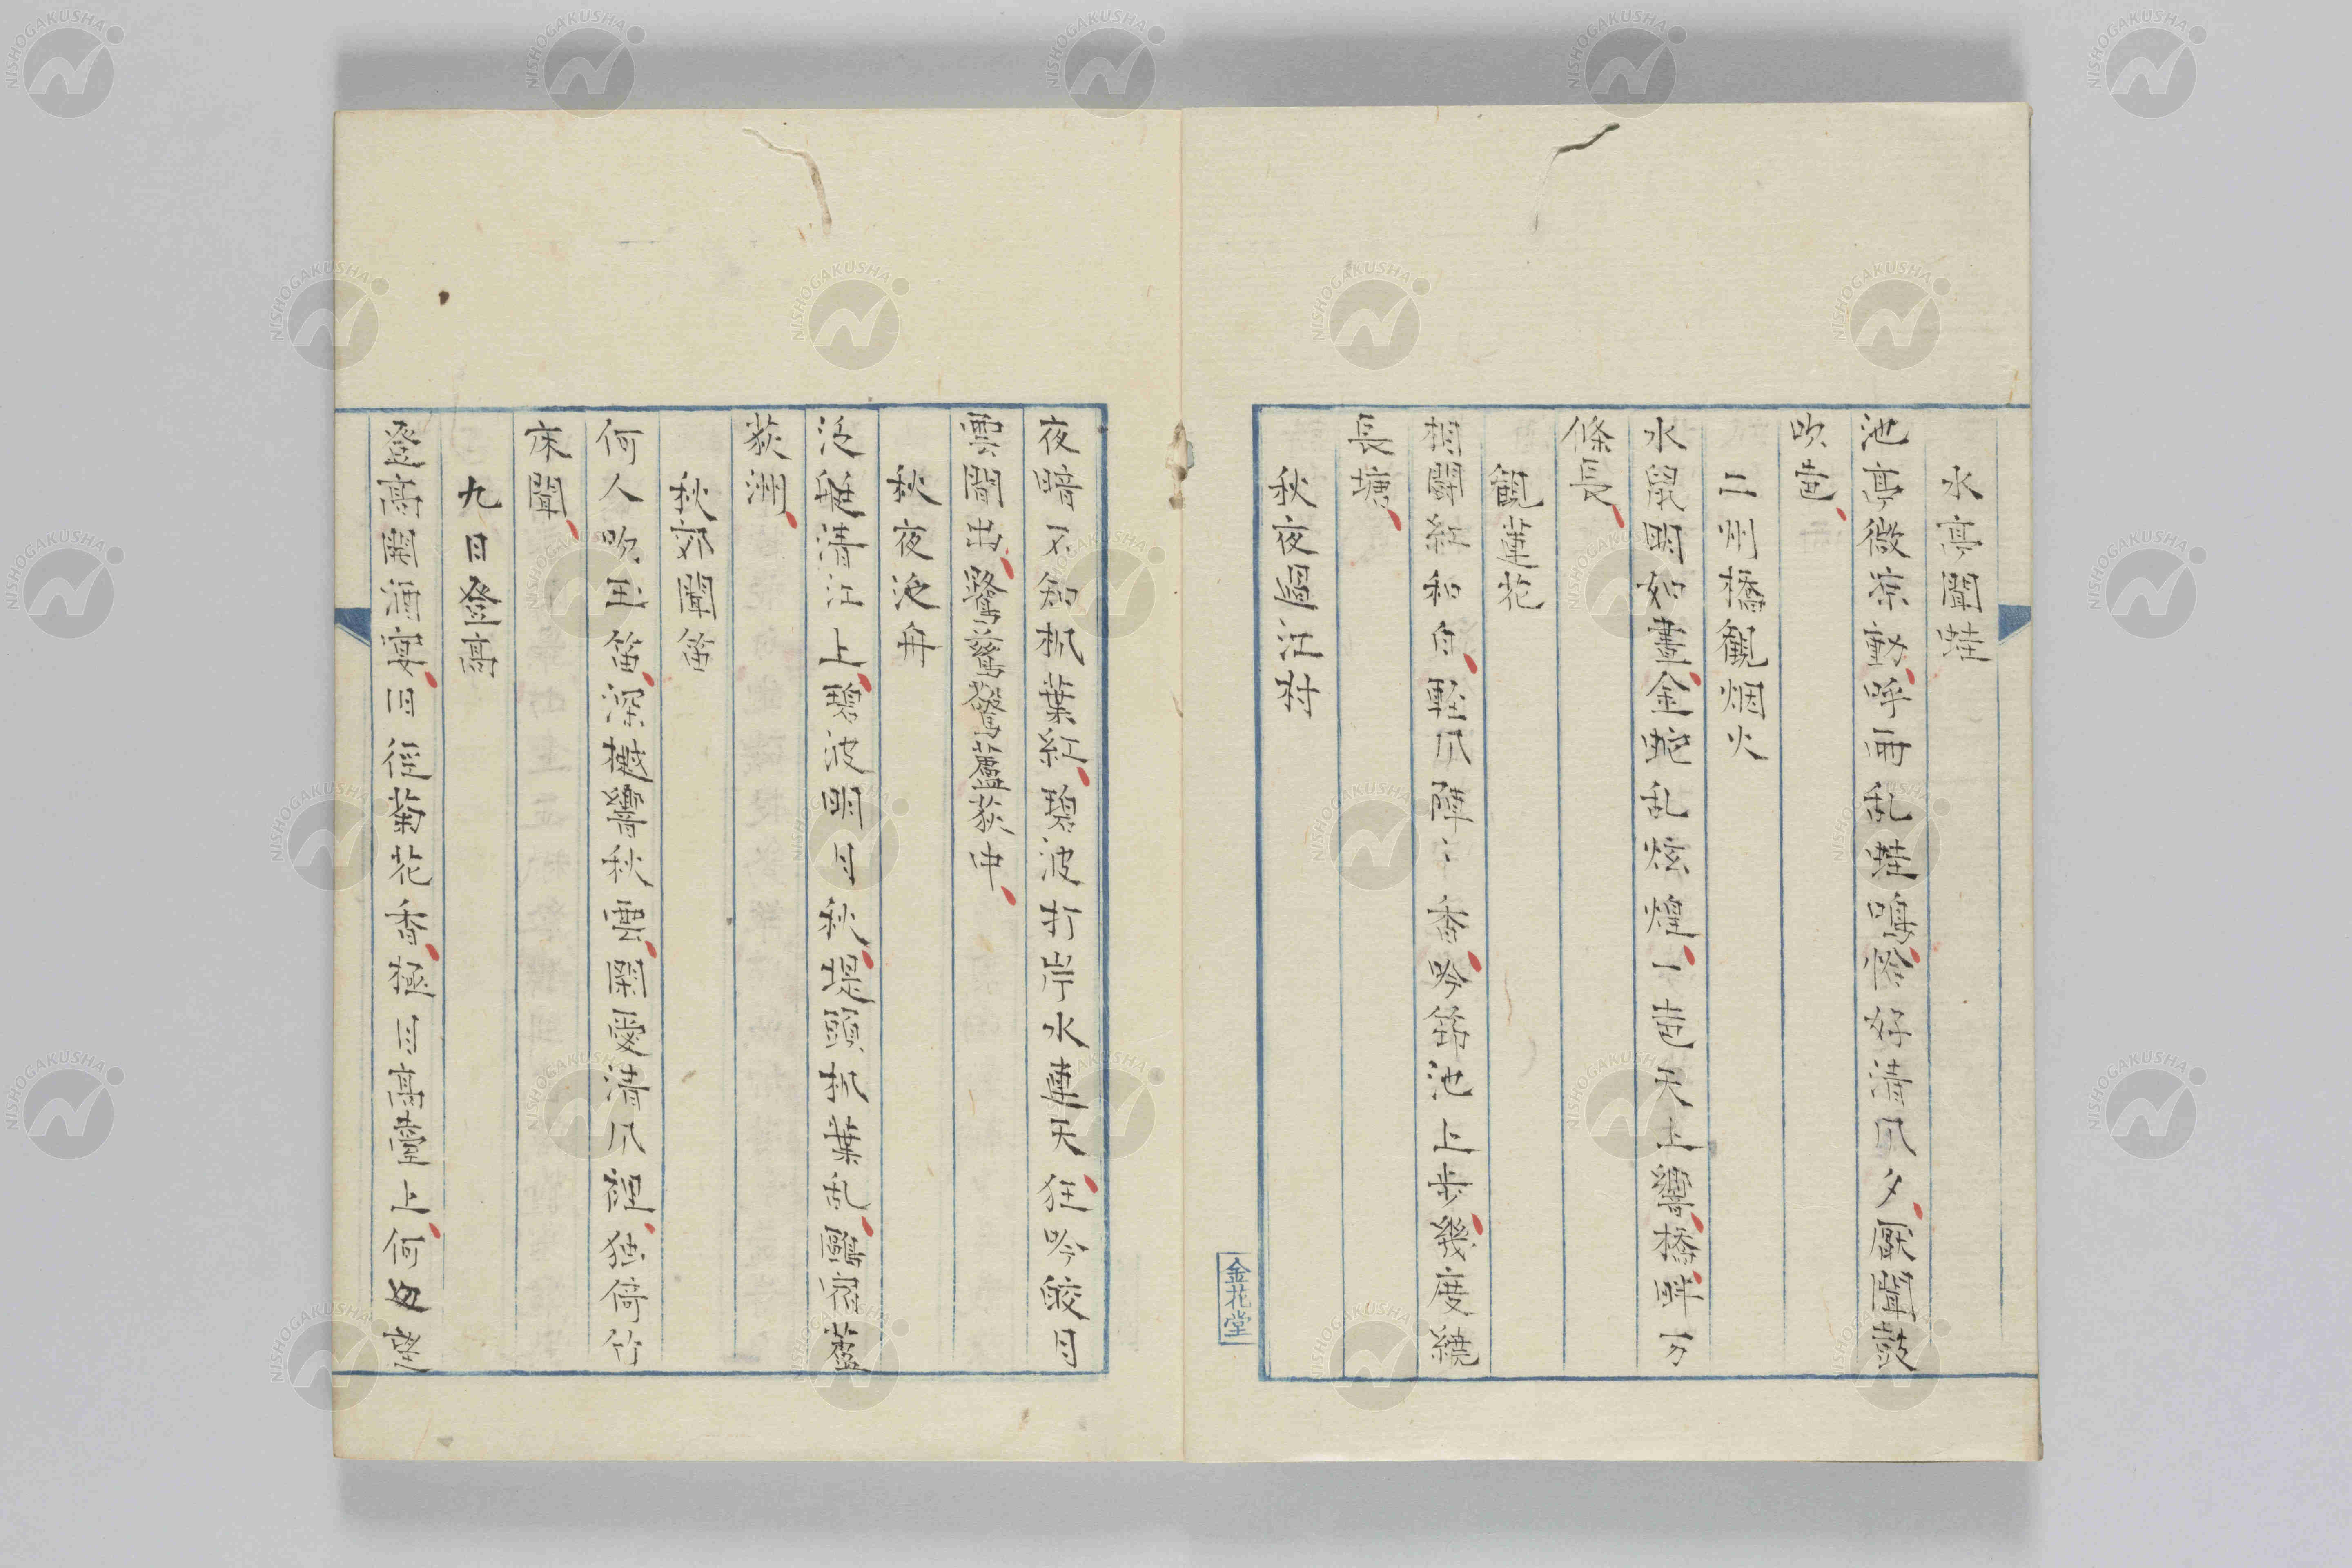 水亭聞蛙
池亭微涼動呼雨乱蛙鳴怪好清风夕厭聞鼓
吹声
二州橋観烟火
水鼠明如晝金蛇乱炫煌一声天上響橋畔万
條長
観蓮花
相闘紅和白軽风陣〻香吟笻池上歩幾度繞
長塘
秋夜過江村
金花堂
夜暗不知机葉紅碧波打岸水連天狂吟皎月
雲間出鷺鷥驚蘆荻中
秋夜泛舟
泛艇清江上碧波明月秋堤頭机葉乱鷗宿蘆
荻洲
秋郊聞笛
何人吹玉笛深樾響秋雲閑愛清风裡独倚竹
床聞
九日登高
登高開酒宴日径菊花香極目高臺上何処望